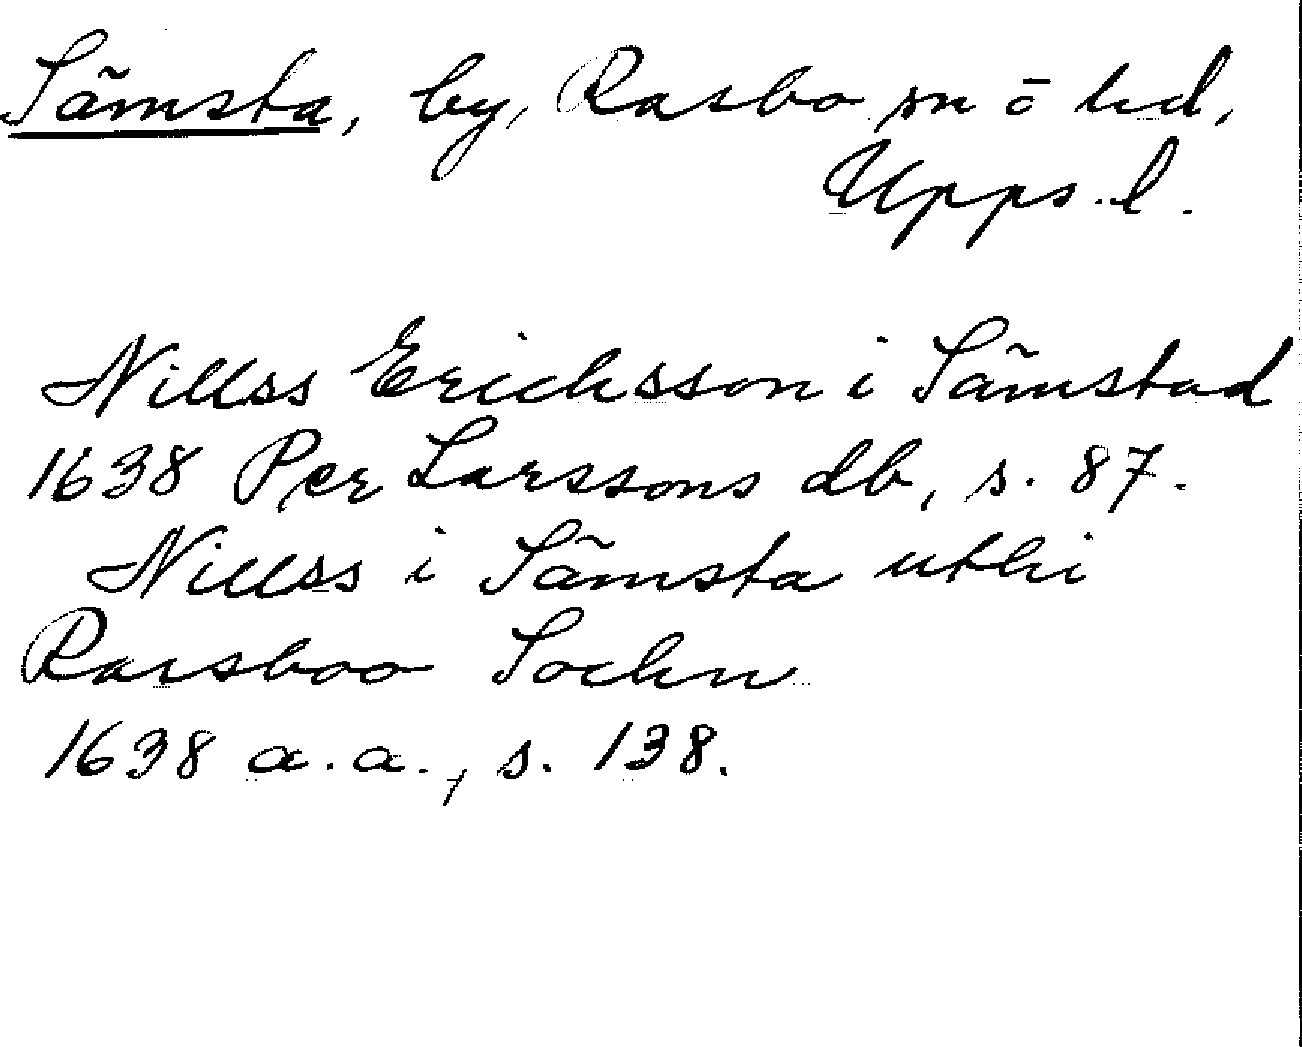 Sämsta, by, Rasbo sn ō hd,
Upps. l.
Nillss Erichsson i Sämstad
1638 Per Larssons db, s. 87.
Nillss i Sämsta uthi
Rarsboo Sochn
1638 a.a., s. 138.